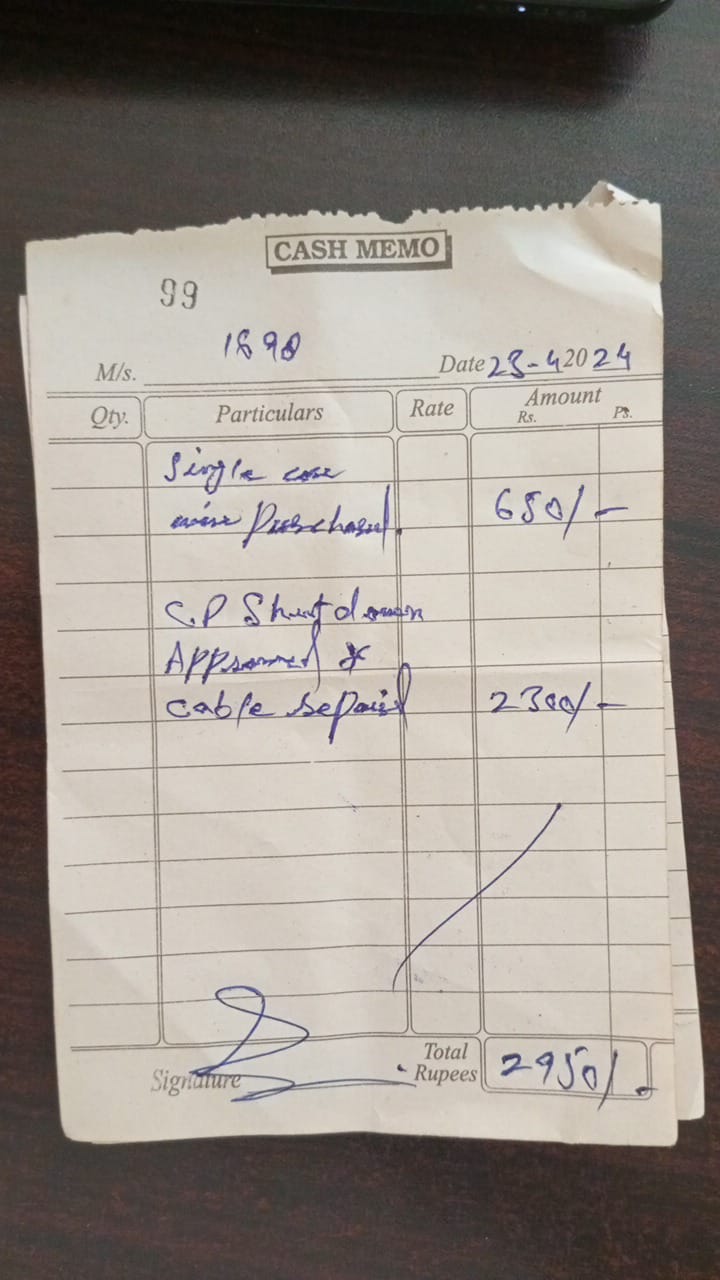 CASH MEMO
99
M/s. 1890 Date 23-4 2024
Qty. Particulars Rate Amount
Rs. Ps.
Single core
wire Purchased. 650/-
C.P Shutdown
Approved &
cable repaired 2300/-
Signature Total Rupees 2950/-